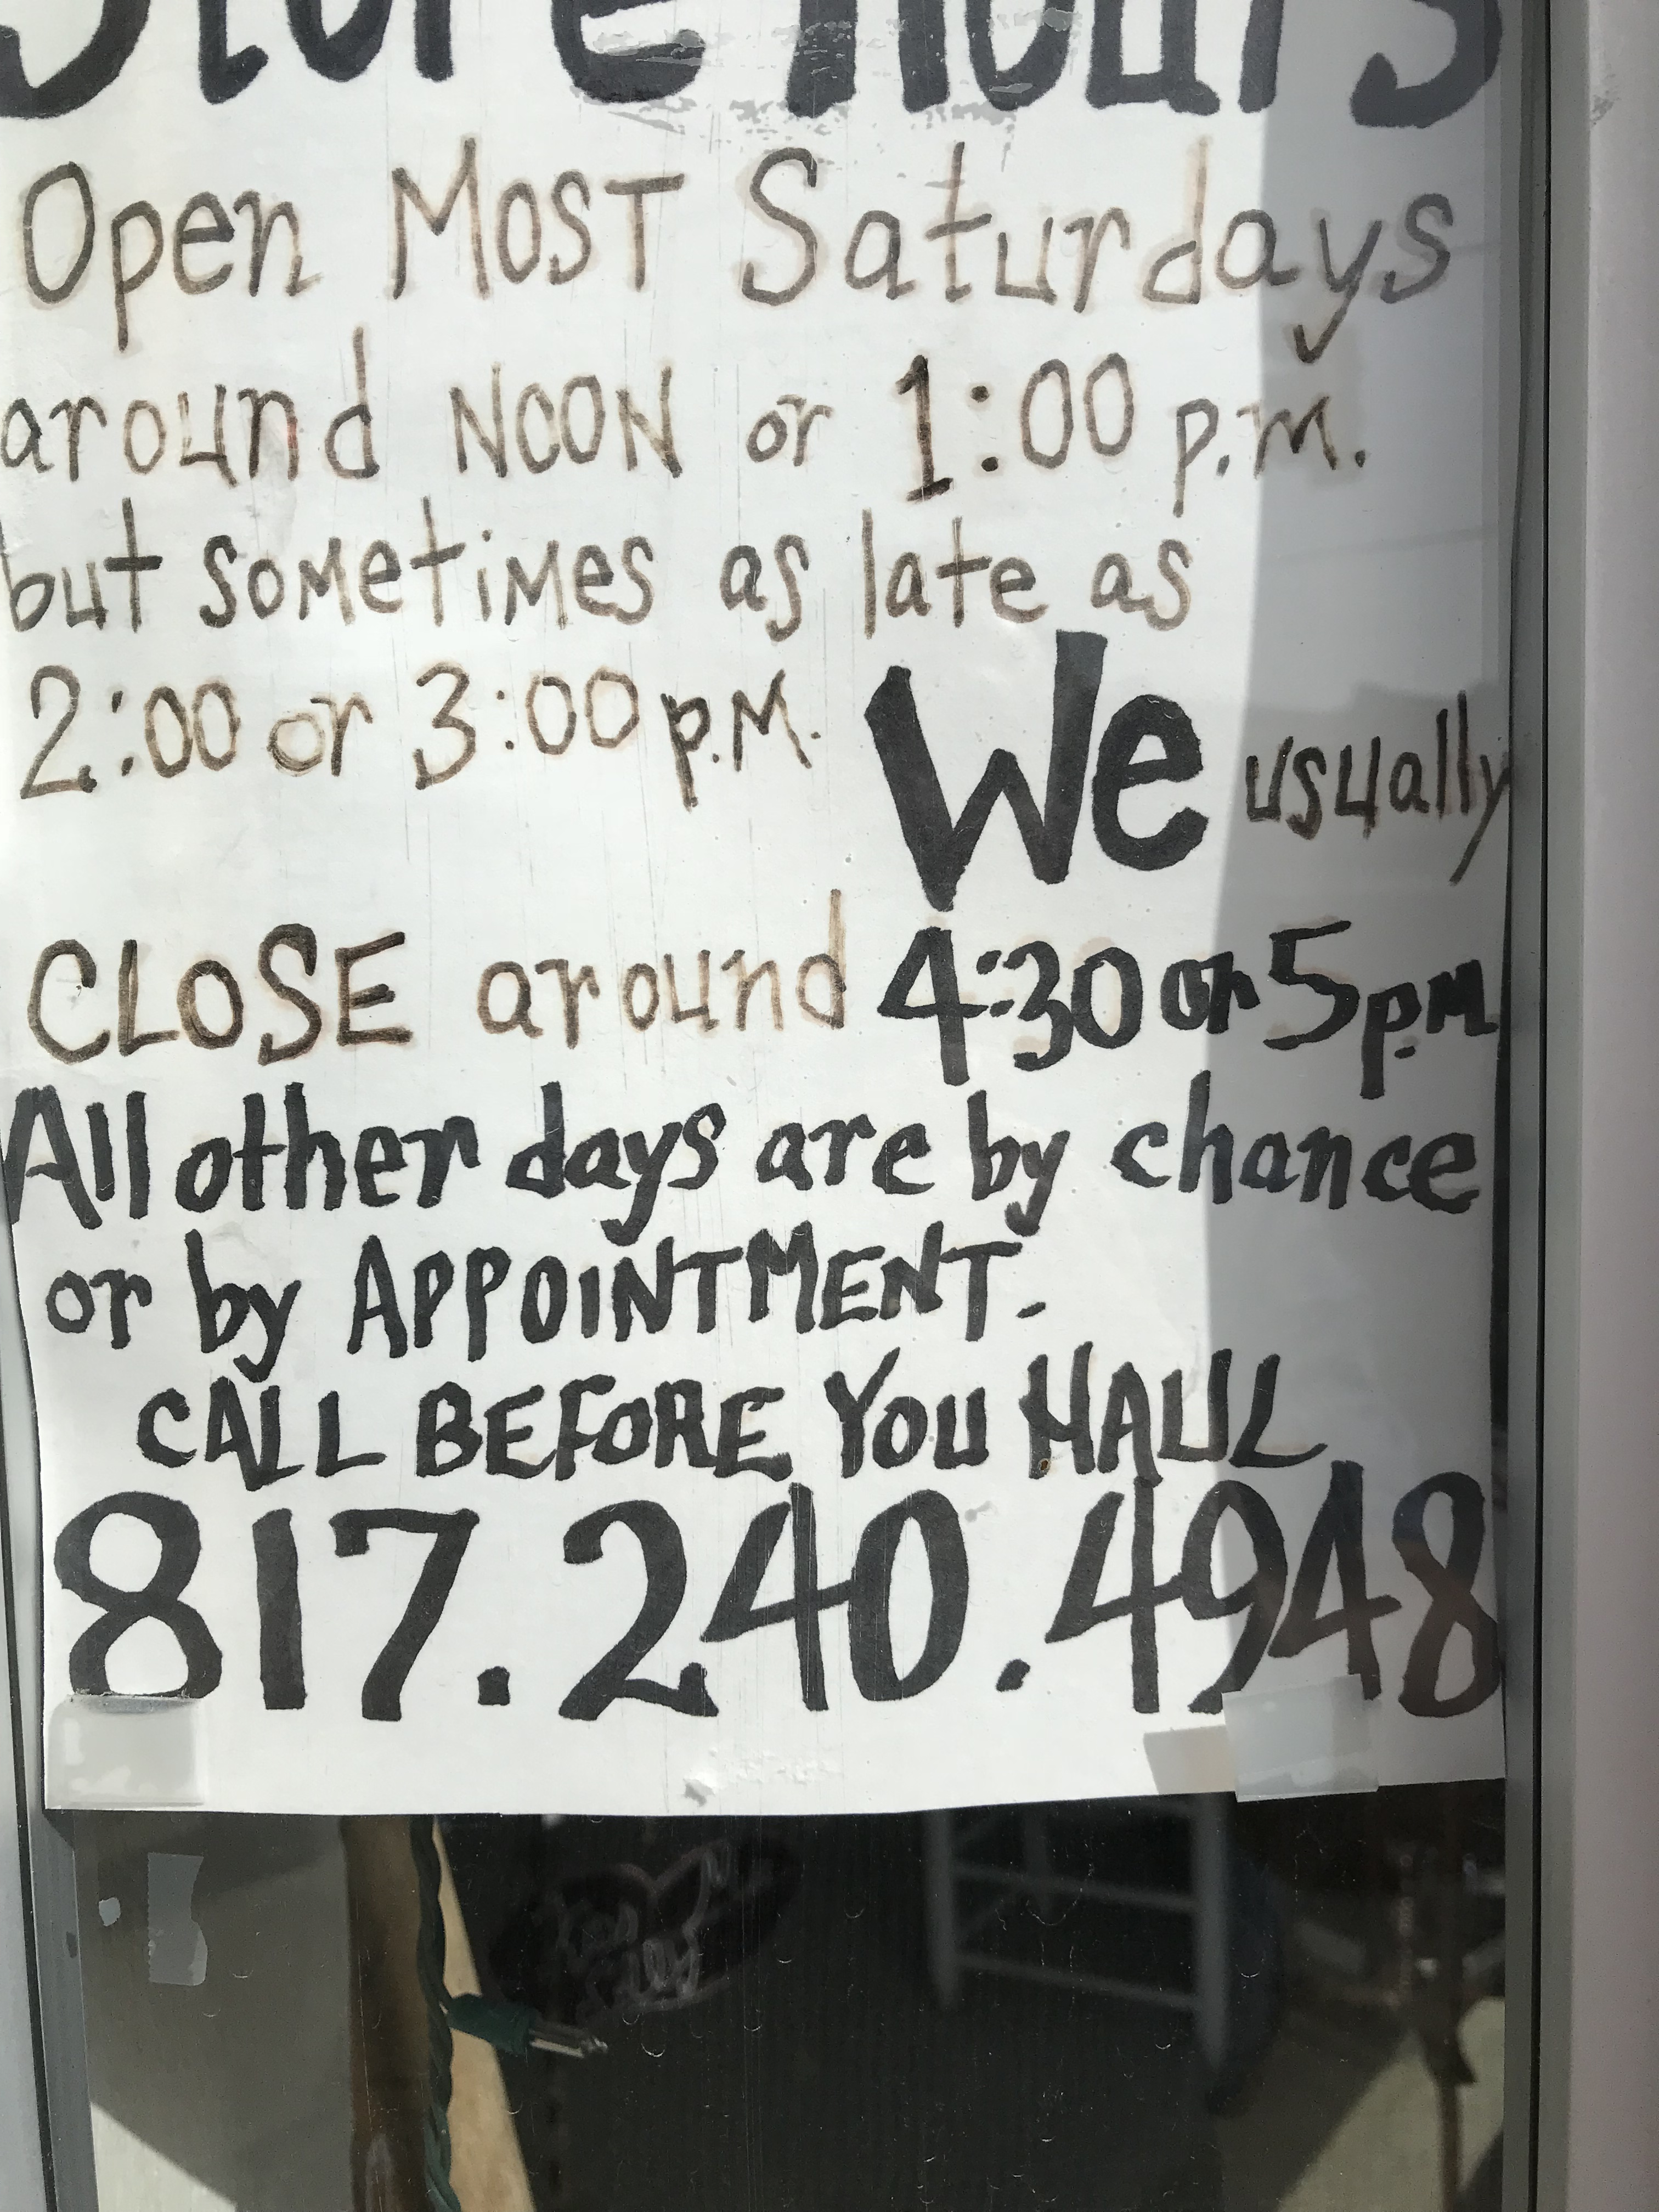 Store Hours
Open MOST Saturdays
around NOON or 1:00 P.M.
but SOMetiMes as late as
2:00 or 3:00 p.M. We usually
CLOSE around 4:30 or 5 p.M
All other days are by chance
or by APPOINTMENT.
CALL BEFORE YOU HAUL
817.240.4948